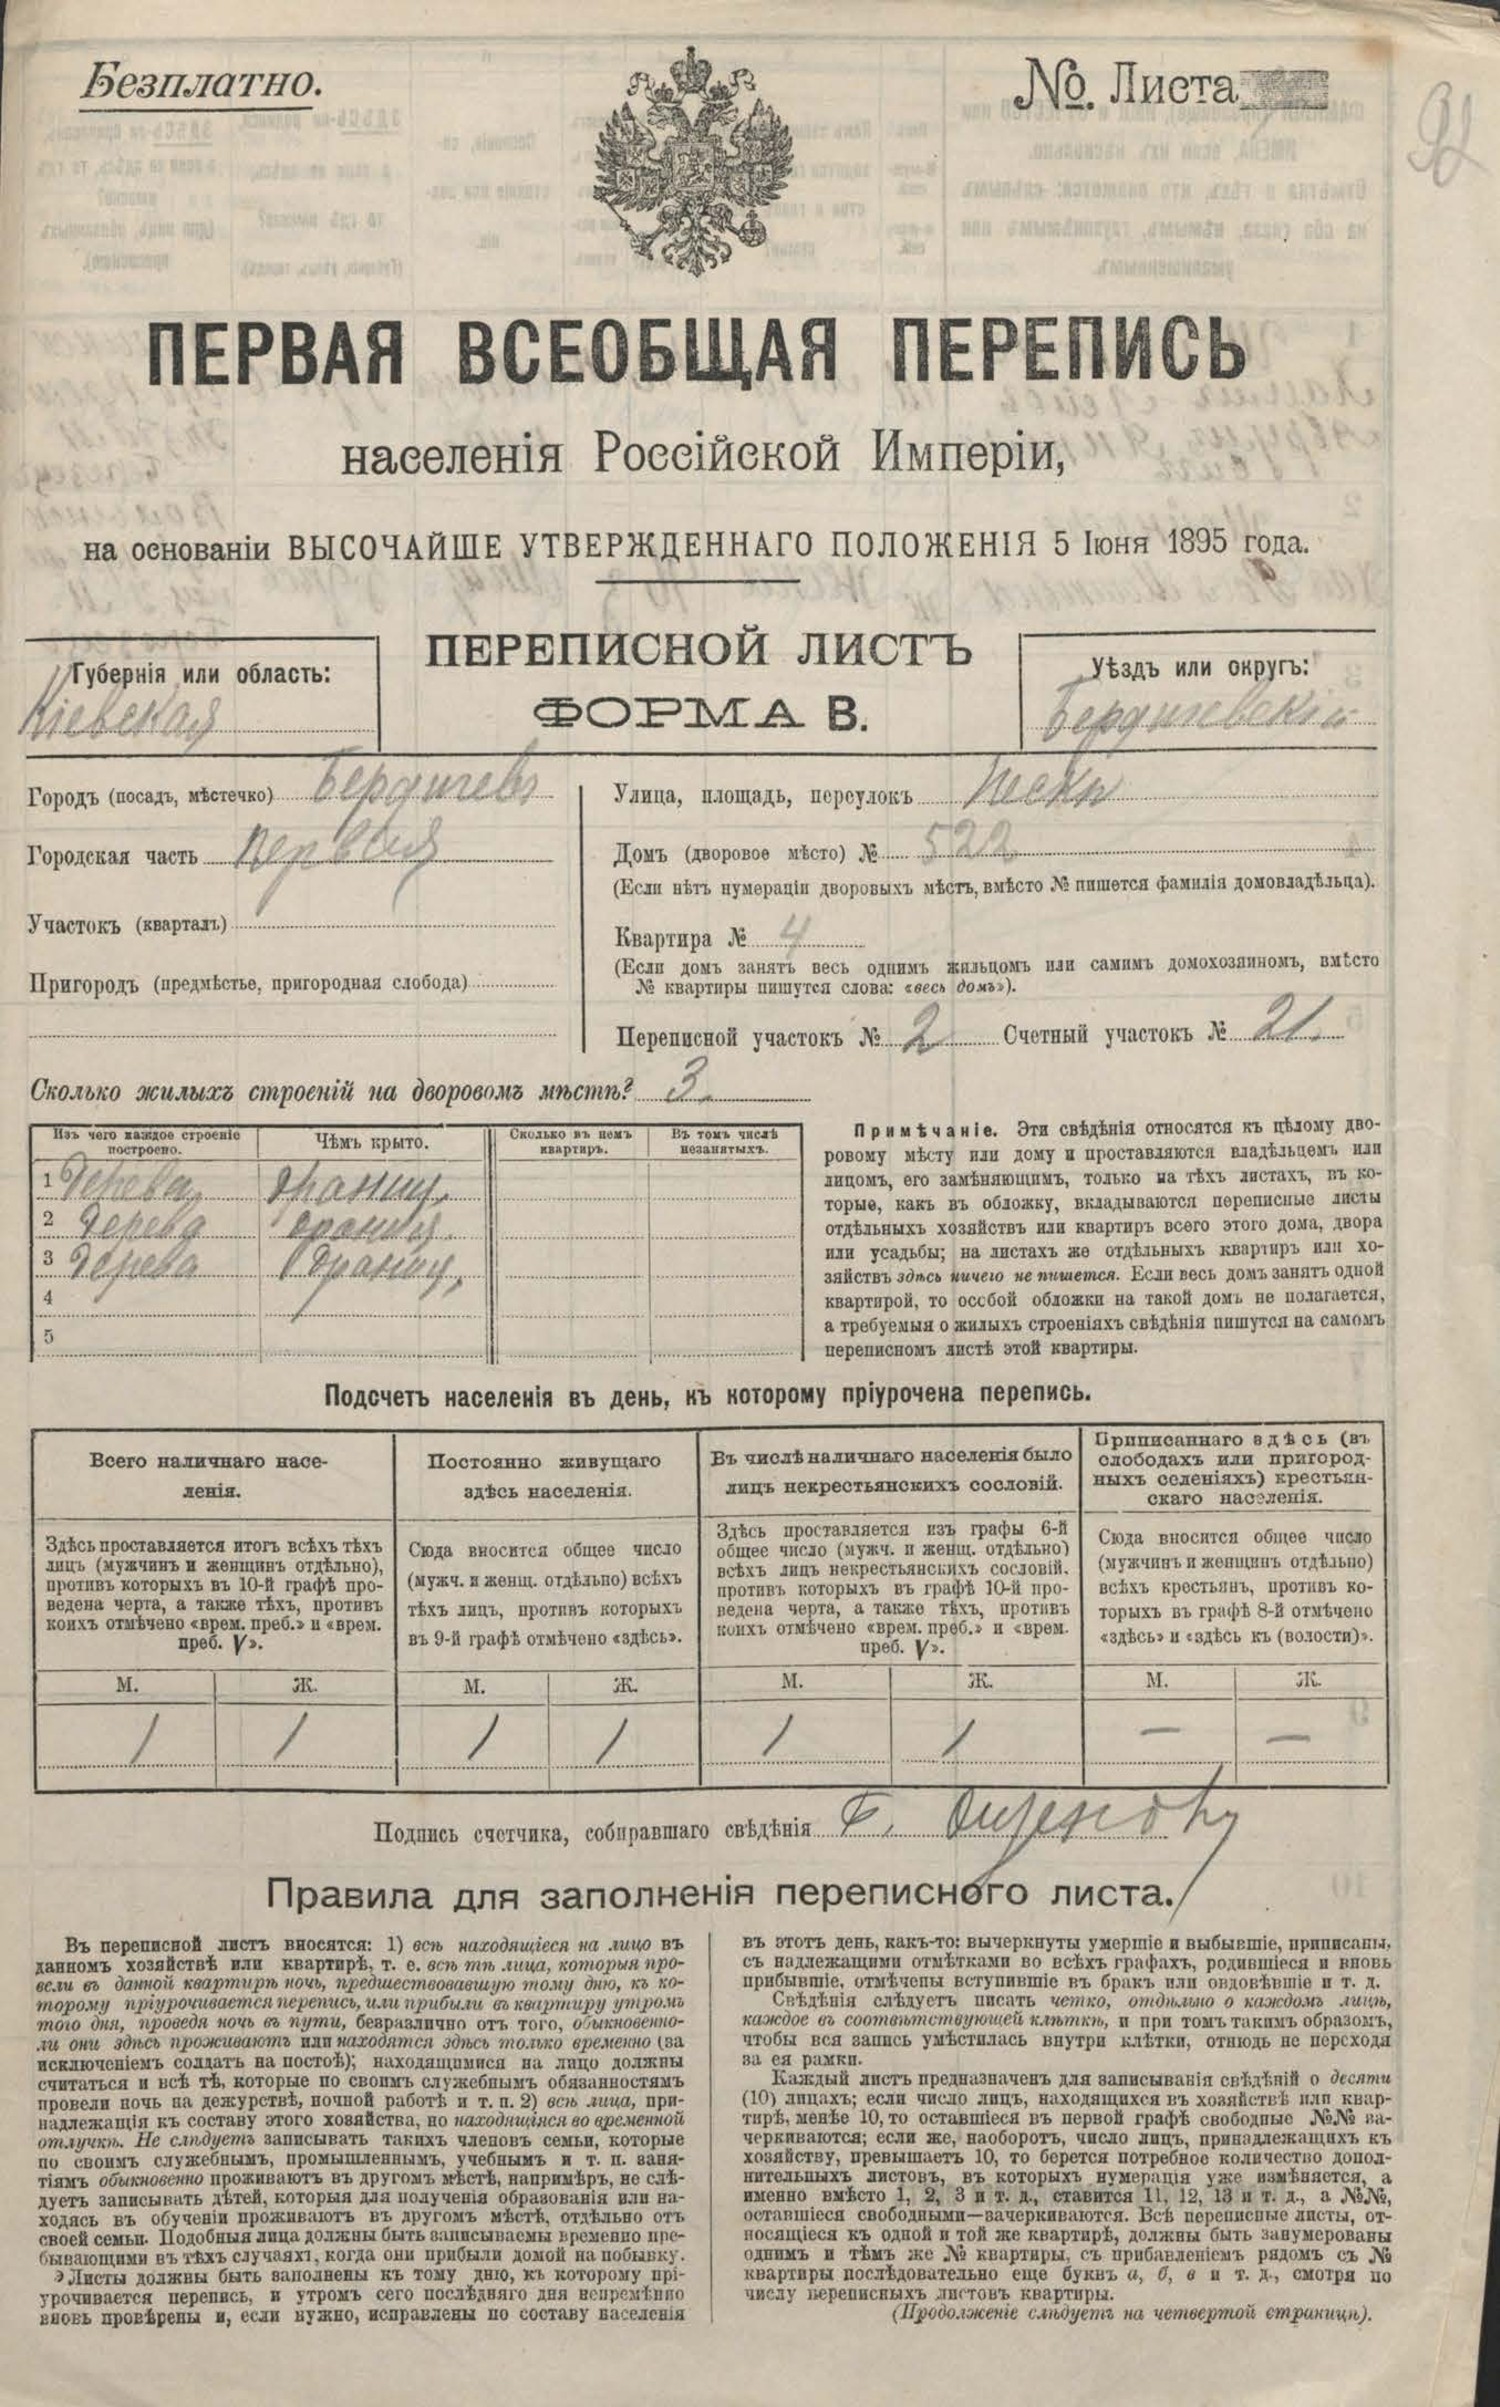 Безплатно.
№. Листа
ПЕРВАЯ ВСЕОБЩАЯ ПЕРЕПИСЬ
населенія Россійской Имперіи,
на основаніи ВЫСОЧАЙШЕ УТВЕРЖДЕННАГО ПОЛОЖЕНІЯ 5 Іюня 1895 года.
ПЕРЕПИСНОЙ ЛИСТЪ
ФОРМА В.
Губернія или область:
Кіевская
Уѣздъ или округъ:
Бердичевскій
Городъ (посадъ, мѣстечко) Бердичевъ
Городская часть Первая
Участокъ (кварталъ)
Пригородъ (предмѣстье, пригородная слобода)
Улица, площадь, переулокъ Пески
Домъ (дворовое мѣсто) № 522
(Если нѣтъ нумераціи дворовыхъ мѣстъ, вмѣсто № пишется фамилія домовладѣльца).
Квартира № 4
(Если домъ занятъ весь однимъ жильцомъ или самимъ домохозяиномъ, вмѣсто
№ квартиры пишутся слова: «весь домъ»).
Переписной участокъ № 2 Счетный участокъ № 21.
Сколько жилыхъ строеній на дворовомъ мѣстѣ? 3.
Изъ чего каждое строеніе построено. Чѣмъ крыто. Сколько въ немъ квартиръ. Въ томъ числѣ незанятыхъ.
1 Дерева драниц.
2 Дерева драниц.
3 Дерева драниц.
4
5
Примѣчаніе. Эти свѣдѣнія относятся къ цѣлому дво-
ровому мѣсту или дому и проставляются владѣльцемъ или
лицомъ, его замѣняющимъ, только на тѣхъ листахъ, въ ко-
торые, какъ въ обложку, вкладываются переписные листы
отдѣльныхъ хозяйствъ или квартиръ всего этого дома, двора
или усадьбы; на листахъ же отдѣльныхъ квартиръ или хо-
зяйствъ здѣсь ничего не пишется. Если весь домъ занятъ одной
квартирой, то особой обложки на такой домъ не полагается,
а требуемыя о жилыхъ строеніяхъ свѣдѣнія пишутся на самомъ
переписномъ листѣ этой квартиры.
Подсчетъ населенія въ день, къ которому пріурочена перепись.
Всего наличнаго насе-
ленія.
Здѣсь проставляется итогъ всѣхъ тѣхъ
лицъ (мужчинъ и женщинъ отдѣльно),
противъ которыхъ въ 10-й графѣ про-
ведена черта, а также тѣхъ, противъ
коихъ отмѣчено «врем. преб.» и «врем.
преб. V».
Постоянно живущаго
здѣсь населенія.
Сюда вносится общее число
(мужч. и женщ. отдѣльно) всѣхъ
тѣхъ лицъ, противъ которыхъ
въ 9-й графѣ отмѣчено «здѣсь».
Въ числѣ наличнаго населенія было
лицъ некрестьянскихъ сословій.
Здѣсь проставляется изъ графы 6-й
общее число (мужч. и женщ. отдѣльно)
всѣхъ лицъ некрестьянскихъ сословій,
противъ которыхъ въ графѣ 10-й про-
ведена черта, а также тѣхъ, противъ
коихъ отмѣчено «врем. преб.» и «врем.
преб. V».
Приписаннаго здѣсь (въ
слободахъ или пригород-
ныхъ селеніяхъ) крестьян-
скаго населенія.
Сюда вносится общее число
(мужчинъ и женщинъ отдѣльно)
всѣхъ крестьянъ, противъ ко-
торыхъ въ графѣ 8-й отмѣчено
«здѣсь» и «здѣсь къ (волости)».
М. Ж. М. Ж. М. Ж. М. Ж.
1 1 1 1 1 1 — —
Подпись счетчика, собиравшаго свѣдѣнія
Правила для заполненія переписного листа.
Въ переписной листъ вносятся: 1) всѣ находящіеся на лицо въ
данномъ хозяйствѣ или квартирѣ, т. е. всѣ тѣ лица, которыя про-
вели въ данной квартирѣ ночь, предшествовавшую тому дню, къ ко-
торому пріурочивается перепись, или прибыли въ квартиру утромъ
того дня, проведя ночь въ пути, безразлично отъ того, обыкновенно-
ли они здѣсь проживаютъ или находятся здѣсь только временно (за
исключеніемъ солдатъ на постоѣ); находящимися на лицо должны
считаться и всѣ тѣ, которые по своимъ служебнымъ обязанностямъ
провели ночь на дежурствѣ, ночной работѣ и т. п. 2) всѣ лица, при-
надлежащія къ составу этого хозяйства, но находящіяся во временной
отлучкѣ. Не слѣдуетъ записывать такихъ членовъ семьи, которые
по своимъ служебнымъ, промышленнымъ, учебнымъ и т. п. заня-
тіямъ обыкновенно проживаютъ въ другомъ мѣстѣ, напримѣръ, не слѣ-
дуетъ записывать дѣтей, которыя для полученія образованія или на-
ходясь въ обученіи проживаютъ въ другомъ мѣстѣ, отдѣльно отъ
своей семьи. Подобныя лица должны быть записываемы временно пре-
бывающими въ тѣхъ случаяхъ, когда они прибыли домой на побывку.
Листы должны быть заполнены къ тому дню, къ которому прі-
урочивается перепись, и утромъ сего послѣдняго дня непремѣнно
вновь провѣрены и, если нужно, исправлены по составу населенія
въ этотъ день, какъ-то: вычеркнуты умершіе и выбывшіе, приписаны,
съ надлежащими отмѣтками во всѣхъ графахъ, родившіеся и вновь
прибывшіе, отмѣчены вступившіе въ бракъ или овдовѣвшіе и т. д.
Свѣдѣнія слѣдуетъ писать четко, отдѣльно о каждомъ лицѣ,
каждое въ соотвѣтствующей клѣткѣ, и при томъ такимъ образомъ,
чтобы вся запись умѣстилась внутри клѣтки, отнюдь не переходя
за ея рамки.
Каждый листъ предназначенъ для записыванія свѣдѣній о десяти
(10) лицахъ; если число лицъ, находящихся въ хозяйствѣ или квар-
тирѣ, менѣе 10, то оставшіеся въ первой графѣ свободные №№ за-
черкиваются; если же, наоборотъ, число лицъ, принадлежащихъ къ
хозяйству, превышаетъ 10, то берется потребное количество допол-
нительныхъ листовъ, въ которыхъ нумерація уже измѣняется, а
именно вмѣсто 1, 2, 3 и т. д., ставится 11, 12, 13 и т. д., а №№,
оставшіеся свободными—зачеркиваются. Всѣ переписные листы, от-
носящіеся къ одной и той же квартирѣ, должны быть занумерованы
однимъ и тѣмъ же № квартиры, съ прибавленіемъ рядомъ съ №
квартиры послѣдовательно еще буквъ а, б, в и т. д., смотря по
числу переписныхъ листовъ квартиры.
(Продолженіе слѣдуетъ на четвертой страницѣ).